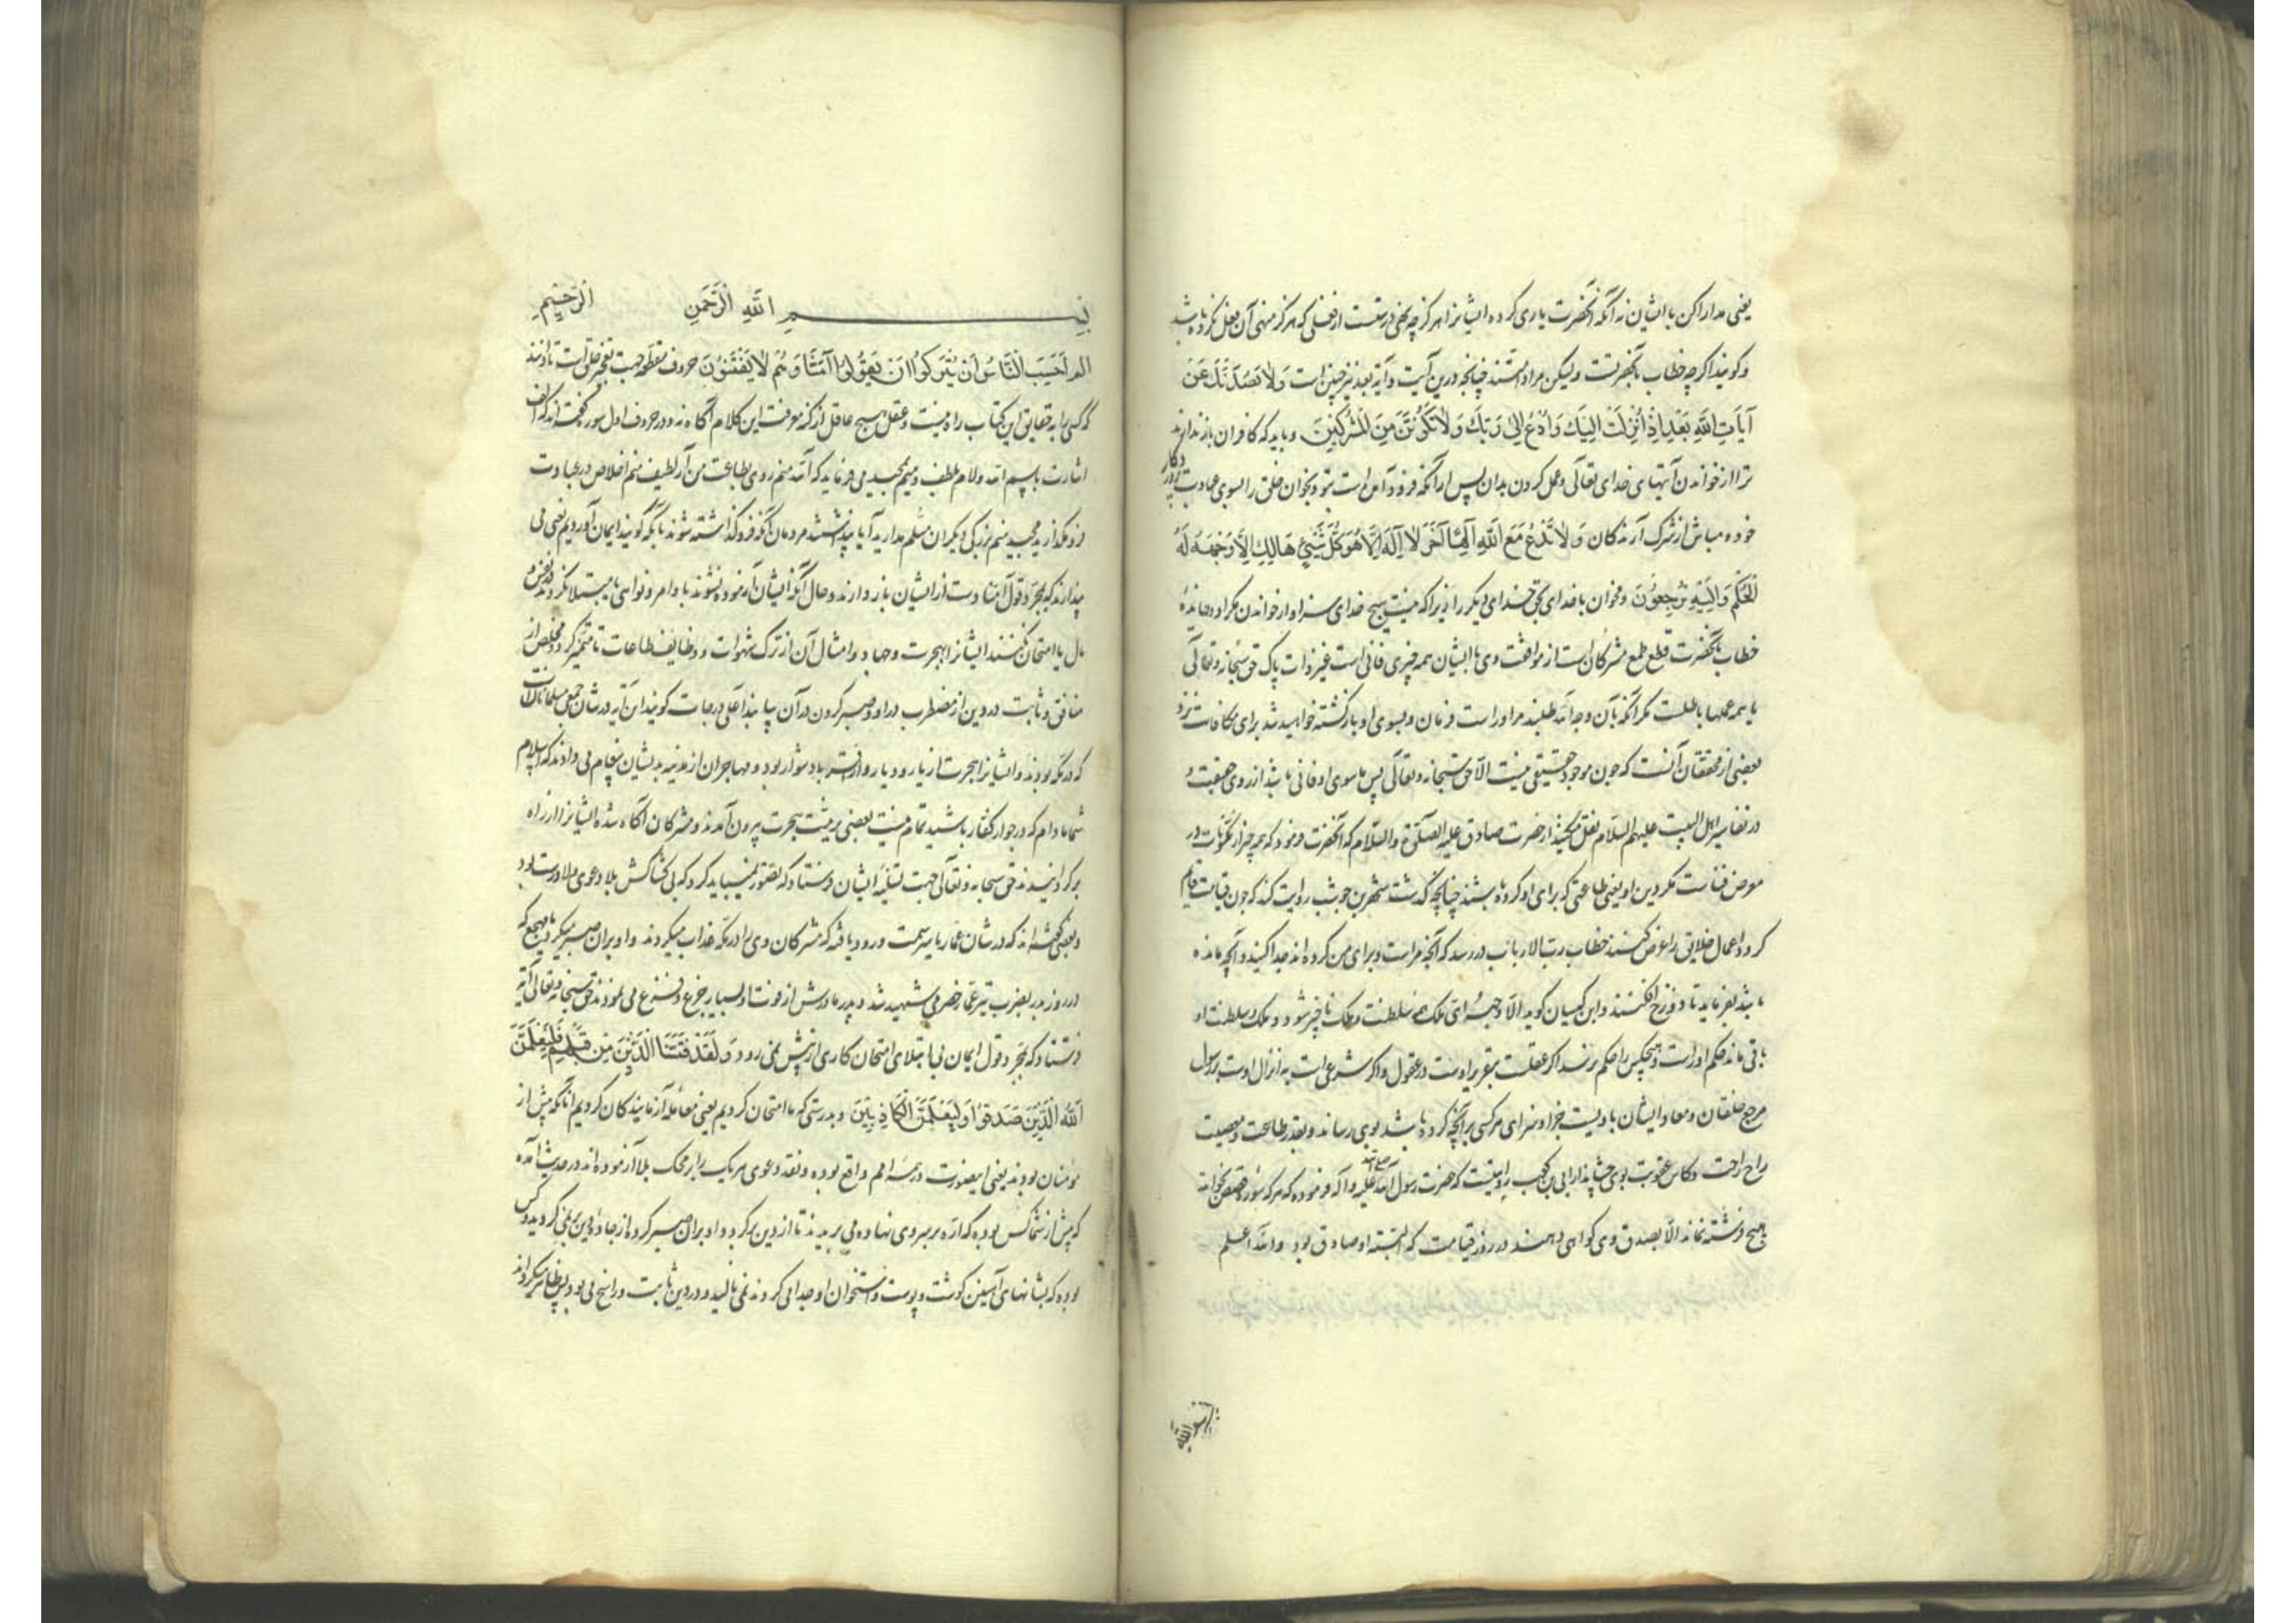 یعنی مدارا کن با ایشان نه آنکه آنحضرت یاری کرده ایشانرا هرگز چه نهی درست است از فعلی که هرگز منهی آن فعل نکرده باشد
و گویند اگرچه خطاب بآنحضرتست ولیکن مراد امتند چنانچه درین آیت و آیه بعد نیز چنین است وَلَا يَصُدُّنَّكَ عَنْ
آيَاتِ اللَّهِ بَعْدَ إِذْ أُنْزِلَتْ إِلَيْكَ وَادْعُ إِلَى رَبِّكَ وَلَا تَكُونَنَّ مِنَ الْمُشْرِكِينَ و باید که کافران باز ندارند
ترا از خواندن آیتهای خدای تعالی و عمل کردن بدان پس از آنکه فرود آمده است بتو و بخوان خلق را بسوی عبادت پروردگار
خود و مباش از شرک آرندگان وَلَا تَدْعُ مَعَ اللَّهِ إِلَهًا آخَرَ لَا إِلَهَ إِلَّا هُوَ كُلُّ شَيْءٍ هَالِكٌ إِلَّا وَجْهَهُ لَهُ
الْحُكْمُ وَإِلَيْهِ تُرْجَعُونَ و مخوان با خدای بحق خدای دیگر را زیرا که نیست هیچ خدای سزاوار خواندن مگر او
خطاب بآنحضرت قطع طمع مشرکان است از موافقت وی با ایشان همه چیزی فانی است غیر ذات پاک حق سبحانه و تعالی
یا همه عملها باطلست مگر آنکه بآن وجه الله طلبند مر او راست فرمان و بسوی او بازگشته خواهید شد برای مکافات نزد
بعضی از محققان آنست که چون موجود حقیقی نیست الا حق سبحانه و تعالی پس ما سوی او فانی باشد از روی حقیقت و
در تفاسیر اهل البیت علیهم السلام نقل میکنند از حضرت صادق علیه الصلوة والسلام که آنحضرت فرمود که همه چیز از مکونات در
معرض فناست مگر دین او یعنی طاعتی که برای او کرده باشند چنانچه گذشت شهر بن حوشب روایت کند که چون قیامت قایم
گردد اعمال خلایق را عرض کنند خطاب رب الارباب در رسد که آنچه مراست و برای من کرده اند جدا کنید و آنچه مانده
باشد بفرماید تا در دوزخ افکنند و ابن کیسان گوید الا وجهه ای ملکه همه سلطنت و ملک ناچیز شود و ملک و سلطنت او
باقی ماند حکم او راست و هیچکس را حکم نرسد اگر عقلست بتقریر اوست در عقول و اگر شرعی است به انزال اوست بر رسول
مرجع خلقان و معاد ایشان باویست جزا و سزای هرکسی بر آنچه کرده باشد بوی رساند و بقدر طاعت و معصیت
راح راحت و کاس عقوبت بوی چشاند از ابی بن کعب روایتست که حضرت رسول الله صلی الله علیه و آله فرموده که هر که سوره قصص بخواند
هیچ فرشته نماند الا بصدق وی گواهی دهند در روز قیامت که البته او صادق بود والله اعلم
بِسْمِ اللَّهِ الرَّحْمَنِ الرَّحِيمِ
الم أَحَسِبَ النَّاسُ أَنْ يُتْرَكُوا أَنْ يَقُولُوا آمَنَّا وَهُمْ لَا يُفْتَنُونَ حروف مقطعه جهت تعجیز خلق است تا دانند
که کسی را به حقایق این کتاب راه نیست و عقل هیچ عاقل از کنه معرفت این کلام آگاه نه و در حروف اول سور گفته اند که الف
اشارت باسم الله و لام بلطف و میم بمجید می فرماید که الله منم روی بطاعت من آر لطیف منم اخلاص در عبادت
فرو مگذارید مجید منم بزرگی دیگران مسلم مدارید آیا پنداشتند مردمان آنکه فرو گذاشته شوند بآنکه گویند ایمان آوردیم یعنی می
پندارند که بمجرد قول آمنا دست از ایشان باز دارند و حال آنکه ایشان آزموده نشوند باوامر و نواهی یا مبتلا نگردند در نفس و
مال یا امتحان نکنند ایشانرا بهجرت و جهاد و امثال آن از ترک شهوات و وظایف طاعات تا متمیز گردد مخلص از
منافق و ثابت در دین از مضطرب در او و صبر کردن در آن بیابند اعلی درجات گویند این آیه در شان جمعی مسلمانانست
که در مکه بودند و ایشانرا هجرت از یار و دیار و از اقربا دشوار بود و مهاجران از مدینه بدیشان پیغام می دادند که اسلام
شما مادام که در جوار کفار باشید تمام نیست بعضی به نیت هجرت بیرون آمدند و مشرکان آگاه شده ایشانرا از راه
برگردانیدند حق سبحانه و تعالی جهت تسلیه ایشان فرستاد که تصور نمیباید کرد که بی کشاکش بلا دعوی ولا درست بود
و بعضی گفته اند که در شان عمار یاسر سمت ورود یافته که مشرکان وی را در مکه عذاب میکردند و او بران صبر میکرد یا مهجع که
در روز بدر بضرب تیر عمار حضرمی شهید شد و پدر و مادرش از فوت او بسیار جزع و فزع می نمودند حق سبحانه و تعالی آیه
فرستاد که بمجرد قول ایمان بی ابتلای امتحان کاری از پیش نمی رود وَلَقَدْ فَتَنَّا الَّذِينَ مِنْ قَبْلِهِمْ فَلَيَعْلَمَنَّ
اللَّهُ الَّذِينَ صَدَقُوا وَلَيَعْلَمَنَّ الْكَاذِبِينَ و بدرستی که ما امتحان کردیم یعنی معامله آزمایندگان کردیم آنانکه پیش از
مومنان بودند یعنی اینصورت در همه امم واقع بوده و نقد دعوی هر یک را بر محک بلا آزموده اند در حدیث آمده
که پیش از شما کس بوده که اره بر سر وی نهاده می بریدند تا از دین برگردد و او بران صبر کرده از جاده دین بر نمی گردید و کس
بوده که بشانهای آهنین گوشت و پوست و استخوان او جدا می کردند نمی نالید و در دین ثابت و راسخ می بود